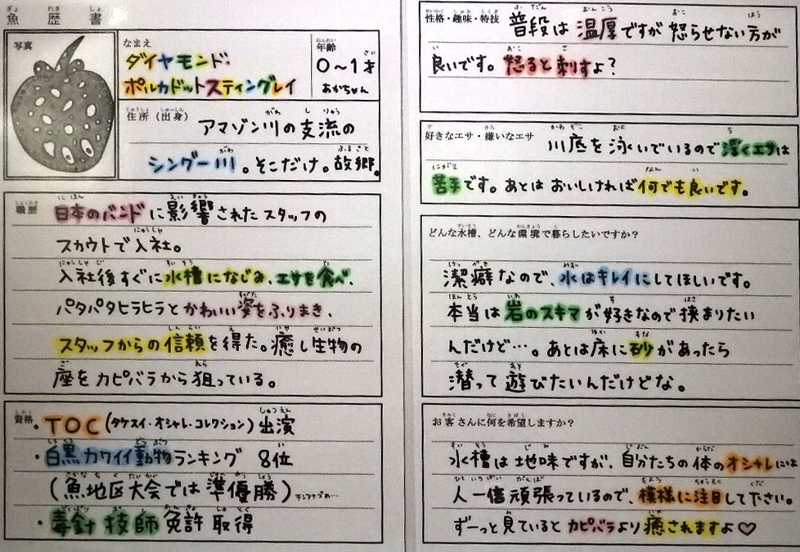 魚歴書
写真
なまえ
ダイヤモンド・
ポルカドットスティングレイ
年齢
0〜1才
あかちゃん
住所（出身）
アマゾン川の支流の
シングー川。そこだけ。故郷。
職歴
日本のバンドに影響されたスタッフの
スカウトで入社。
入社後すぐに水槽になじみ、エサを食べ、
パタパタヒラヒラとかわいい姿をふりまき、
スタッフからの信頼を得た。癒し生物の
座をカピバラから狙っている。
資格
・TOC（タケスイ・オシャレ・コレクション）出演
・白黒カワイイ動物ランキング 8位
（魚地区大会では準優勝）
・毒針技師免許取得
性格・趣味・特技
普段は温厚ですが怒らせない方が
良いです。怒ると刺すよ？
好きなエサ・嫌いなエサ
川底を泳いでいるので浮くエサは
苦手です。あとはおいしければ何でも良いです。
どんな水槽、どんな環境で暮らしたいですか？
潔癖なので、水はキレイにしてほしいです。
本当は岩のスキマが好きなので挟まりたい
んだけど…。あとは床に砂があったら
潜って遊びたいんだけどな。
お客さんに何を希望しますか？
水槽は地味ですが、自分たちの体のオシャレには
人一倍頑張っているので、模様に注目して下さい。
ずーっと見ているとカピバラより癒されますよ♡